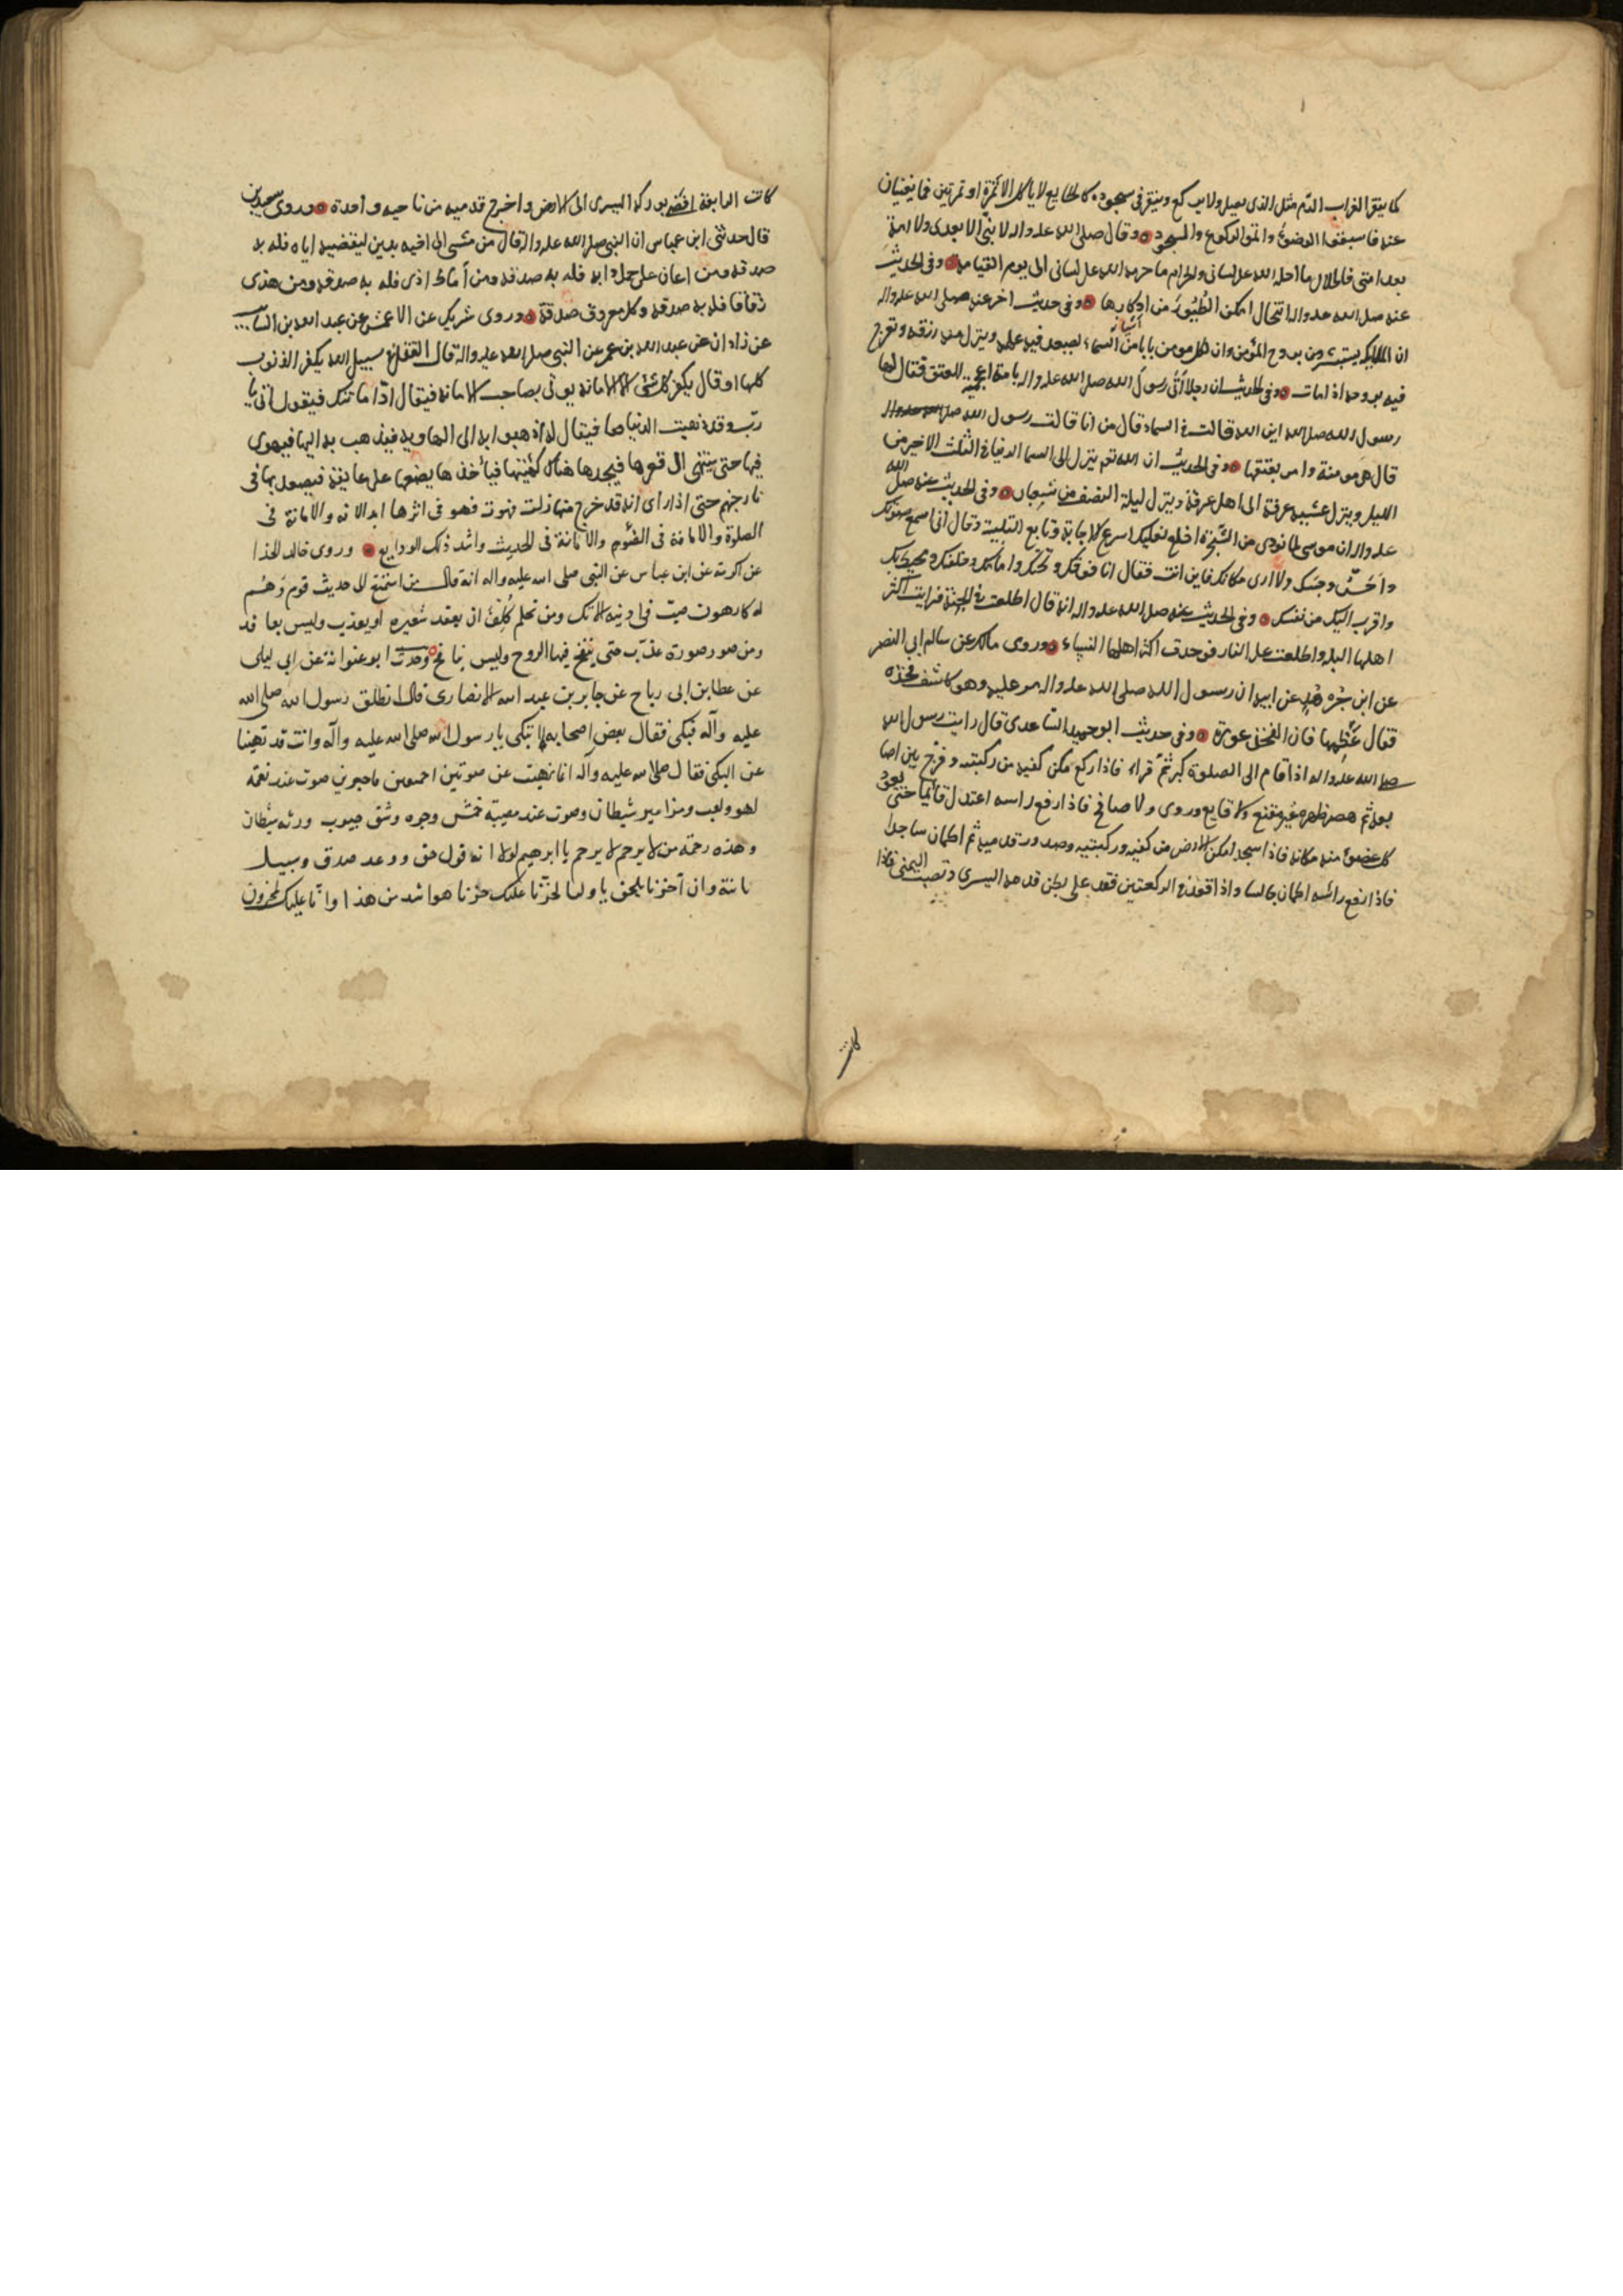 كما ينقر الغراب الدم مثل الذى يصلى ولا يركع وينقر فى سجوده كالجايع لا ياكل الا تمرة او تمرتين فما يغنيان
عنه فاسبغوا الوضوء واتموا الركوع والسجود وقال صلى الله عليه واله لا نبى الا بعدى ولا امة
بعد امتى فالحلال ما احله الله على لسانى والحرام ما حرمه الله على لسانى الى يوم القيامة وفى الحديث
عنه صلى الله عليه واله انه قال امكن الطيور من اوكارها وفى حديث اخر عنه صلى الله عليه واله
ان الملايكة يستبشرون بروح المؤمن وان لكل مومن بابا من السماء يصعد فيه عمله وينزل منه رزقه وتعرج
فيه بروحه اذا مات وفى الحديث ان رجلا أتى رسول الله صلى الله عليه واله بامة اعجمية للعتق فقال لها
رسول الله صلى الله اين الله قالت فى السماء قال من انا قالت رسول الله صلى الله عليه واله
قال هى مومنة وامر بعتقها وفى الحديث ان الله تعم ينزل الى السما الدنيا فى الثلث الاخير من
الليل وينزل عشية عرفة الى اهل عرفة وينزل ليلة النصف من شعبان وفى الحديث عنه صلى الله
عليه واله ان موسى لما نودى من الشجرة اخلع نعليك اسرع الاجابة وتابع التلبية وقال انى اسمع صوتك
واحس وجسك ولا ارى مكانك فاين انت فقال انا فوقك وتحتك وامامك وخلفك ومحيط بك
واقرب اليك من نفسك وفى الحديث عنه صلى الله عليه واله انه قال اطلعت فى الجنة فرايت اكثر
اهلها البله واطلعت على النار فوجدت اكثر اهلها النساء وروى مالك عن سالم ابى النضر
عن ابن جرهد عن ابيه ان رسول الله صلى الله عليه واله مر عليه وهو كاشف فخذه
فقال غطها فان الفخذ عورة وفى حديث ابو حميد الساعدى قال رايت رسول الله
صلى الله عليه واله اذا قام الى الصلوة كبر ثم قراء فاذا ركع مكن كفيه من ركبتيه وفرج بين اصا
بعه ثم هصر ظهره غير مقنع ولا قابع وروى ولا صافح فاذا رفع راسه اعتدل قائما حتى يعود
كل عضو منه مكانه فاذا سجد امكن الارض من كفيه وركبتيه وصدور قدميه ثم اطمان ساجدا
فاذا رفع رائسه اطمان جالسا واذا قعد فى الركعتين قعد على بطن قدمه اليسرى ونصب اليمنى فاذا
كانت
كانت الرابعة افضى بوركه اليسرى الى الارض واخرج قدميه من ناحيه واحدة وروى سعيد بن
قال حدثنى ابن عباس ان النبى صلى الله عليه واله قال من مشى الى اخيه بدين ليقضيه اياه فله به
صدقه ومن اعان على حمل دابه فله به صدقه ومن أماط اذى فله به صدقه ومن هدى
زقاقا فله به صدقه وكل معروف صدقة وروى شريك عن الاعمش عن عبد الله بن السايب
عن زاد ان عن عبد الله بن عمر عن النبى صلى الله عليه واله قال القتل فى سبيل الله يكفر الذنوب
كلها او قال يكفر كل شئ الا الامانة يوتى بصاحب الامانه فيقال ادّ امانتك فيقول انى يا
ربّ وقد ذهبت الدنيا فيقال اذهبوا به الى الهاويه فيذهب به اليها فيهوى
فيها حتى ينتهى الى قعرها فيجدها هناك كهيئتها فيأخذها يضعها على عاتقه فيصعد بها فى
نار جهنم حتى اذا راى انه قد خرج منها زلت فهوت فهو فى اثرها ابدا الا نه والامانة فى
الصلوة والامانة فى الصوم والامانة فى الحديث واشد ذلك الودايع وروى خالد الحذا
عن اكرمه عن ابن عباس عن النبى صلى الله عليه واله انه قال من استمع الى حديث قوم وهم
له كارهون صب فى اذنيه الانك ومن تحلم كلف ان يعقد شعيره او يعذب وليس بعاقد
ومن صور صورة عذب حتى ينفخ فيها الروح وليس بنافخ وحدث ابو عنوانة عن ابى ليلى
عن عطا بن ابى رباح عن جابر بن عبد الله الانصارى قال انطلق رسول الله صلى الله
عليه وآله فبكى فقال بعض اصحابه تبكى يا رسول الله صلى الله عليه وآله وانت قد نهيتنا
عن البكى فقال صلى الله عليه وآله انما نهيت عن صوتين احمقين فاجرين صوت عند نغمة
لهو ولعب ومزامير شيطان وصوت عند مصيبة خمش وجوه وشق جيوب ورنه شيطان
وهذه رحمة من لا يرحم لا يرحم يا ابرهيم لولا انه قول حق ووعد صدق وسبيل
باننة وان آخرنا يلحق باولنا لحزنا عليك حزنا هو اشد من هذا وانّا عليك لمحزون